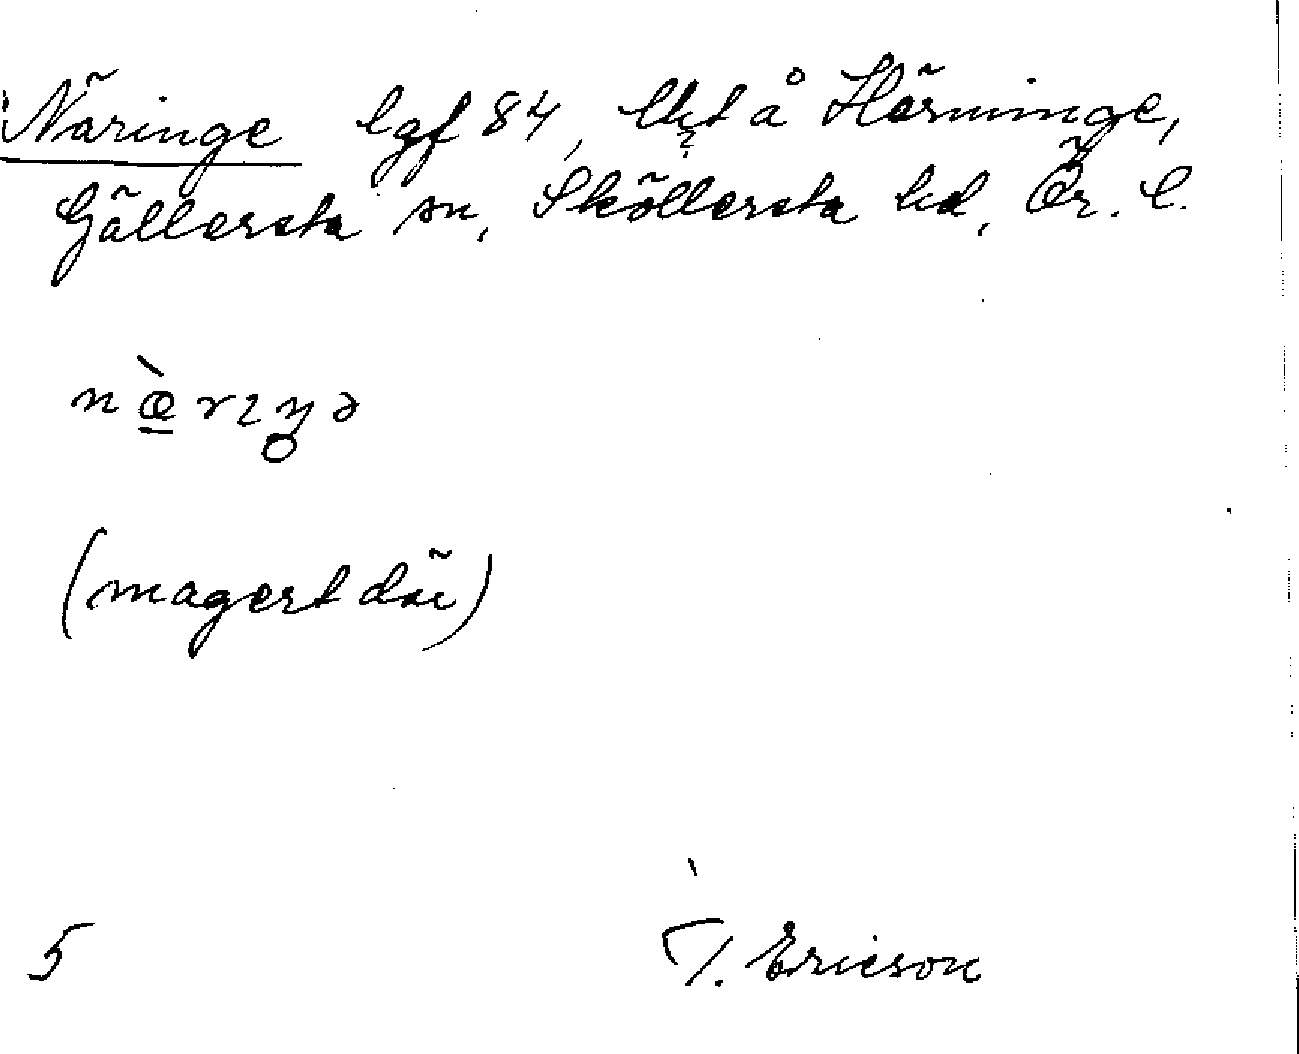 Näringe lgf 84, lht å Hörninge,
Gällersta sn, Sköllersta hd, Ör. l.
nœ̲̀rıŋə
(magert där)
5 T. Ericson